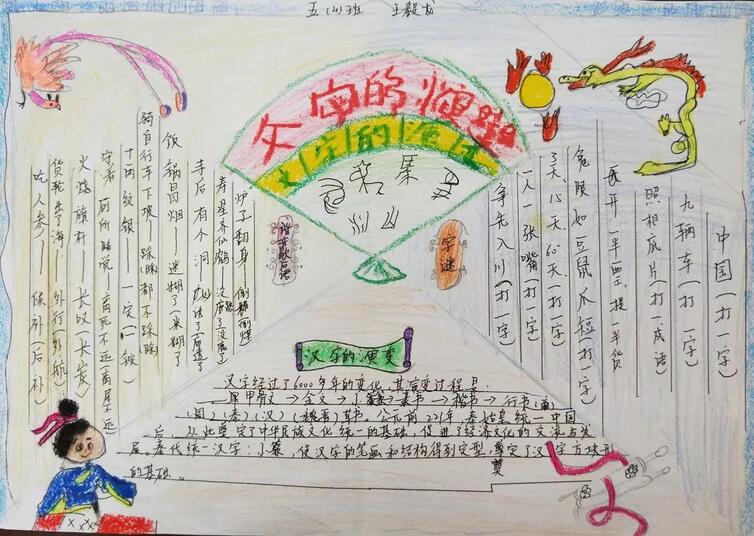 五(2)班 王毅龙
文字的演
文字的演
谐音歇后语
字谜
中国(打一字)
九辆车(打一字)
照相底片(打一成语)
要开一半票,提一半货
兔眼如豆鼠爪短(打一字)
了天、15天、60天、(打一字)
一人一张嘴(打一字)
争先入川(打一字)
炉子翻身——倒
寿星齐仙鹤——没
寺后有个洞——妙
饭锅冒烟——迷糊了(米糊了
骑自行车下坡——踩踩都不踩踩
十两纹银——一定(一锭)
守着厕所睡觉——离死不远(离屎不远
火烧旗杆——长叹(长炭)
货轮出了海——外行(外航)
吃人参——候补(后补)
汉字的演变
汉字经过了6000多年的变化,其演变过程是:
甲骨文→金文→小篆→隶书→楷书→行书(商)
(周)(秦)(汉)(魏晋)草书。公元前221年,秦始皇统一中国
后,从此奠定了中华民族文化统一的基础,促进了经济文化的交流与发
展。秦代统一汉字:小篆,使汉字的笔画和结构得到定型,奠定了汉字方块形
奠
的基础。